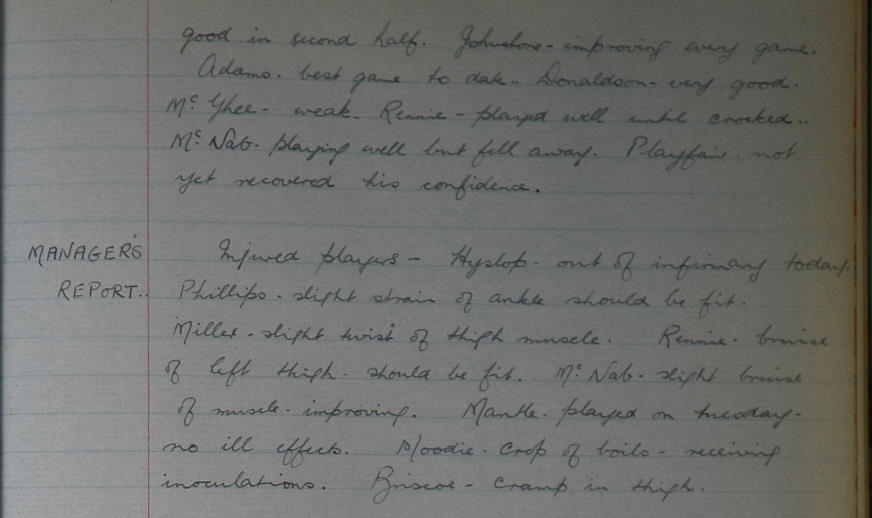 good in second half. Johnstone - improving every game.
Adams. best game to date.. Donaldson - very good.
Mc Ghee - weak.. Rennie - played well until crocked..
Mc Nab. playing well but fell away. Playfair. not
yet recovered his confidence.
MANAGER'S Injured players - Hyslop. out of infirmary today.
REPORT.. Phillips. slight strain of ankle should be fit.
Miller - slight twist of thigh muscle. Rennie. bruise
of left thigh. should be fit. Mc Nab. slight bruise
of muscle. improving. Mantle. played on tuesday -
no ill effects. Moodie. Crop of boils - receiving
inoculations. Briscoe - cramp in thigh.